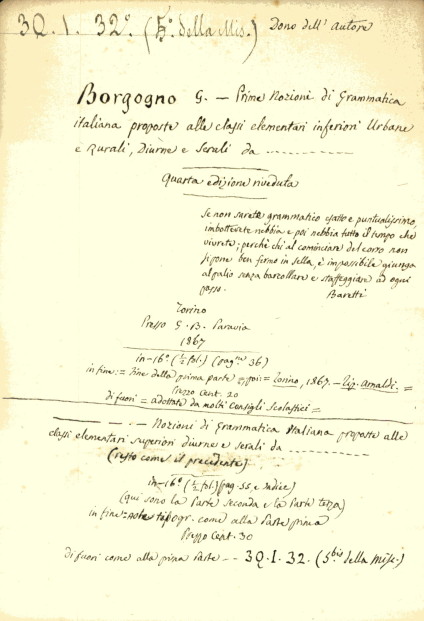 3Q. 1. 32º. (5º. della Mis.) Dono dell' autore
Borgogno G. — Prime Nozioni di Grammatica
italiana proposte alle classi elementari inferiori Urbane
e Rurali, Diurne e Serali da -----------
Quarta edizione riveduta
Se non sarete grammatico esatto e puntualissimo,
imbotterete nebbia e poi nebbia tutto il tempo che
vivrete; perchè chi al cominciare del corso non
si pone ben fermo in sella, è impossibile giunga
al palio senza barcollare e staffeggiare ad ogni
passo.
Baretti
Torino
Presso G. B. Paravia
1867
in-16º (½ fol.) (pagne 36)
in fine: = Fine della prima parte = Torino, 1867. - Tip. Arnaldi. =
Prezzo Cent. 20
di fuori = adottate da molti Consigli Scolastici =
— — — — Nozioni di Grammatica Italiana proposte alle
classi elementari superiori diurne e serali da -----------
(resto come il precedente)
in-16º (½ fol.) (pag. 55, e indice)
(qui sono la Parte seconda e la Parte terza)
in fine = note tipogr. come alla Parte prima
Prezzo Cent. 30
di fuori come alla prima Parte -- 3Q. 1. 32. (5.bis della Misc.)